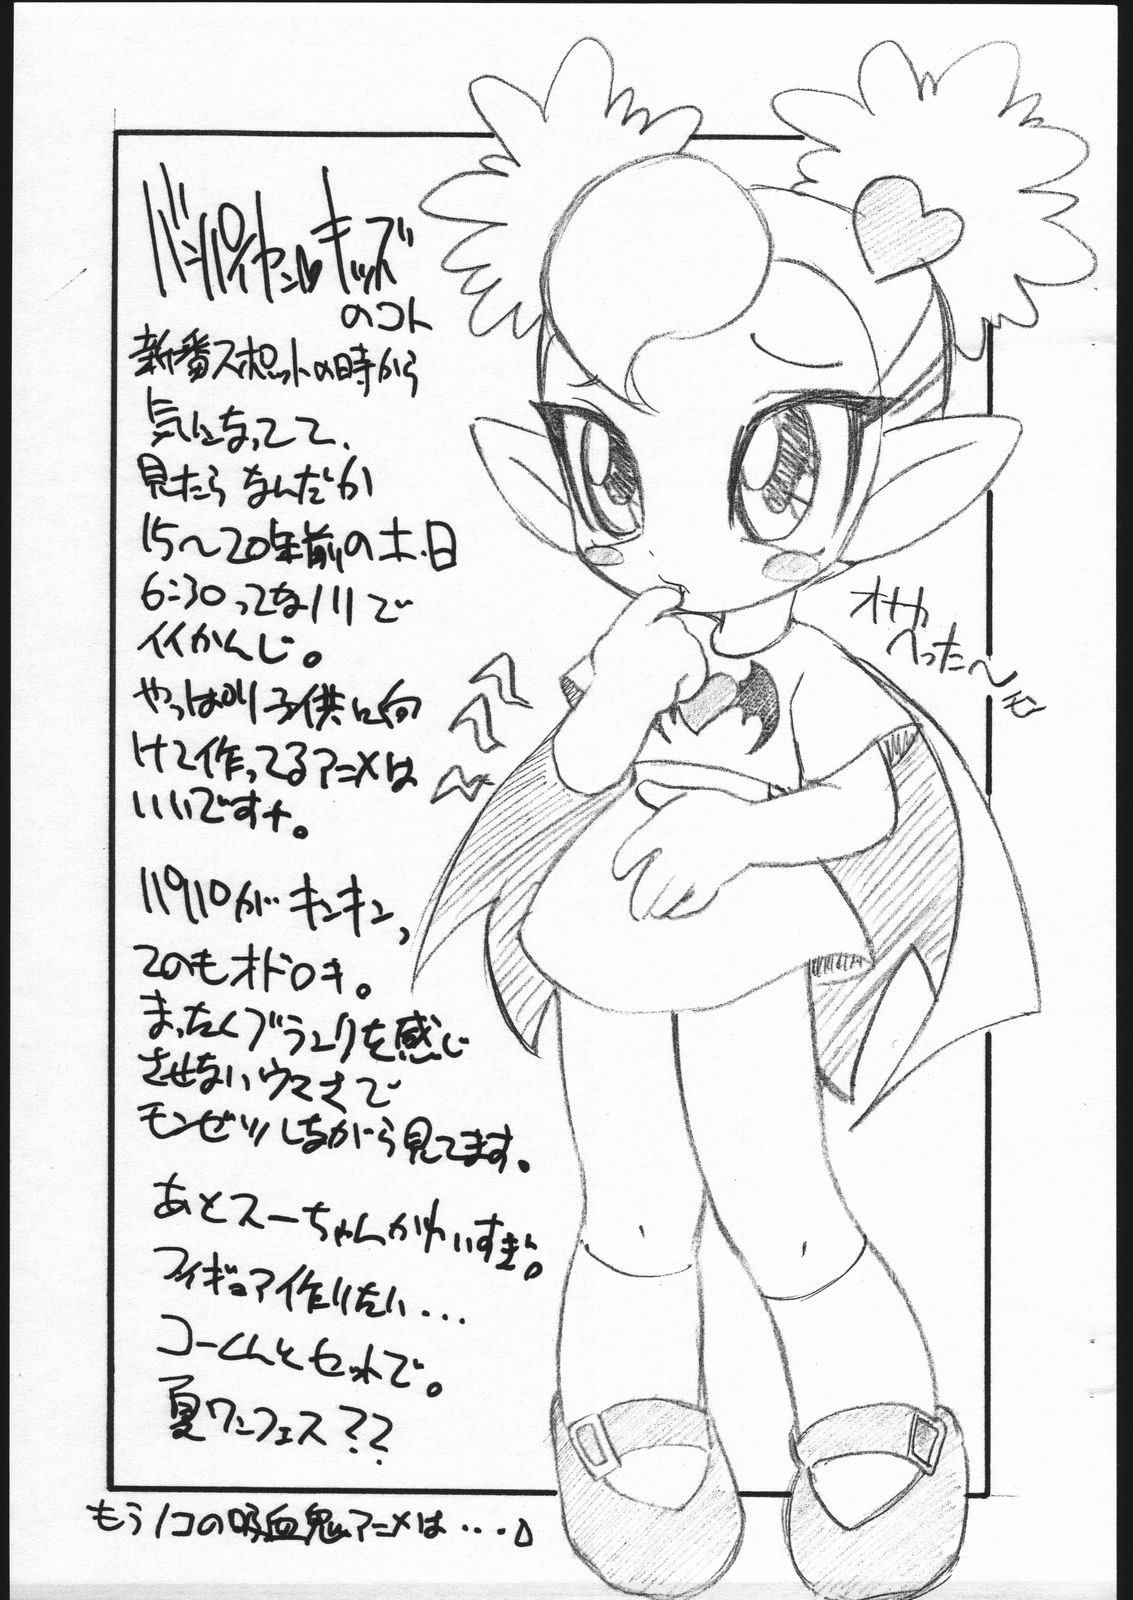 バンパイヤン♥キッズ
のコト
新番スポットの時から
気になってて、
見たら なんだか
15〜20年前の土・日
6:30ってなノリで
イイかんじ。
やっぱり子供に向
けて作ってるアニメは
いいですナ。
パイロがキンキン,
てのもオドロキ。
まったくブランクを感じ
させないウマさで
モンゼツしながら見てます。
あとスーちゃんかわいすぎ。
フィギュア作りたい・・・
コーくんとセットで。
夏ワンフェス??
もう1コの吸血鬼アニメは・・・。
オナカ
へった〜